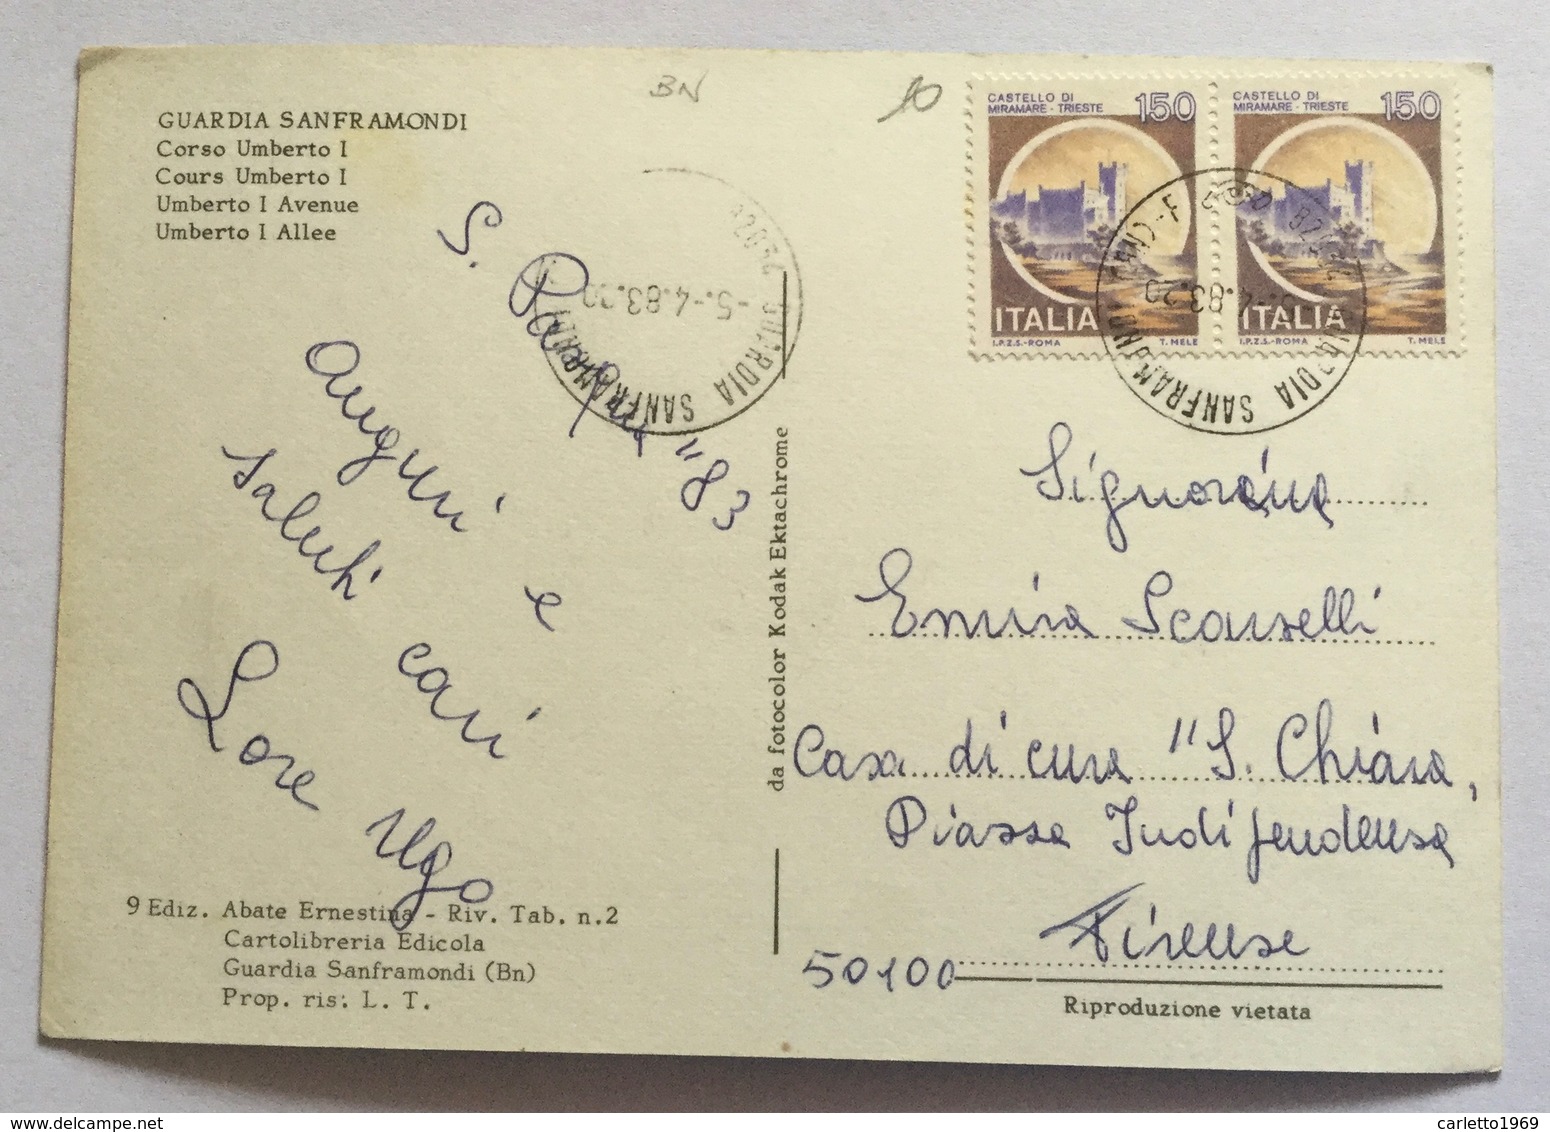 BN
10
GUARDIA SANFRAMONDI
Corso Umberto I
Cours Umberto I
Umberto I Avenue
Umberto I Allee
S. Pasqua "83
Auguri e
saluti cari
Lore Ugo
9 Ediz. Abate Ernestina - Riv. Tab. n.2
Cartolibreria Edicola
Guardia Sanframondi (Bn)
Prop. ris: L. T.
82034 GUARDIA SANFRAMONDI
-5.-4.83.20
da fotocolor Kodak Ektachrome
CASTELLO DI
MIRAMARE - TRIESTE
150
ITALIA
I.P.Z.S.-ROMA T. MELE
CASTELLO DI
MIRAMARE - TRIESTE
150
ITALIA
I.P.Z.S.-ROMA T. MELE
GUARDIA SANFRAMONDI
5.-4.83.20
Signorina
Emira Scarselli
Casa di cura "S. Chiara,
Piazza Indipendenza
Firenze
50100
Riproduzione vietata
carletto1969